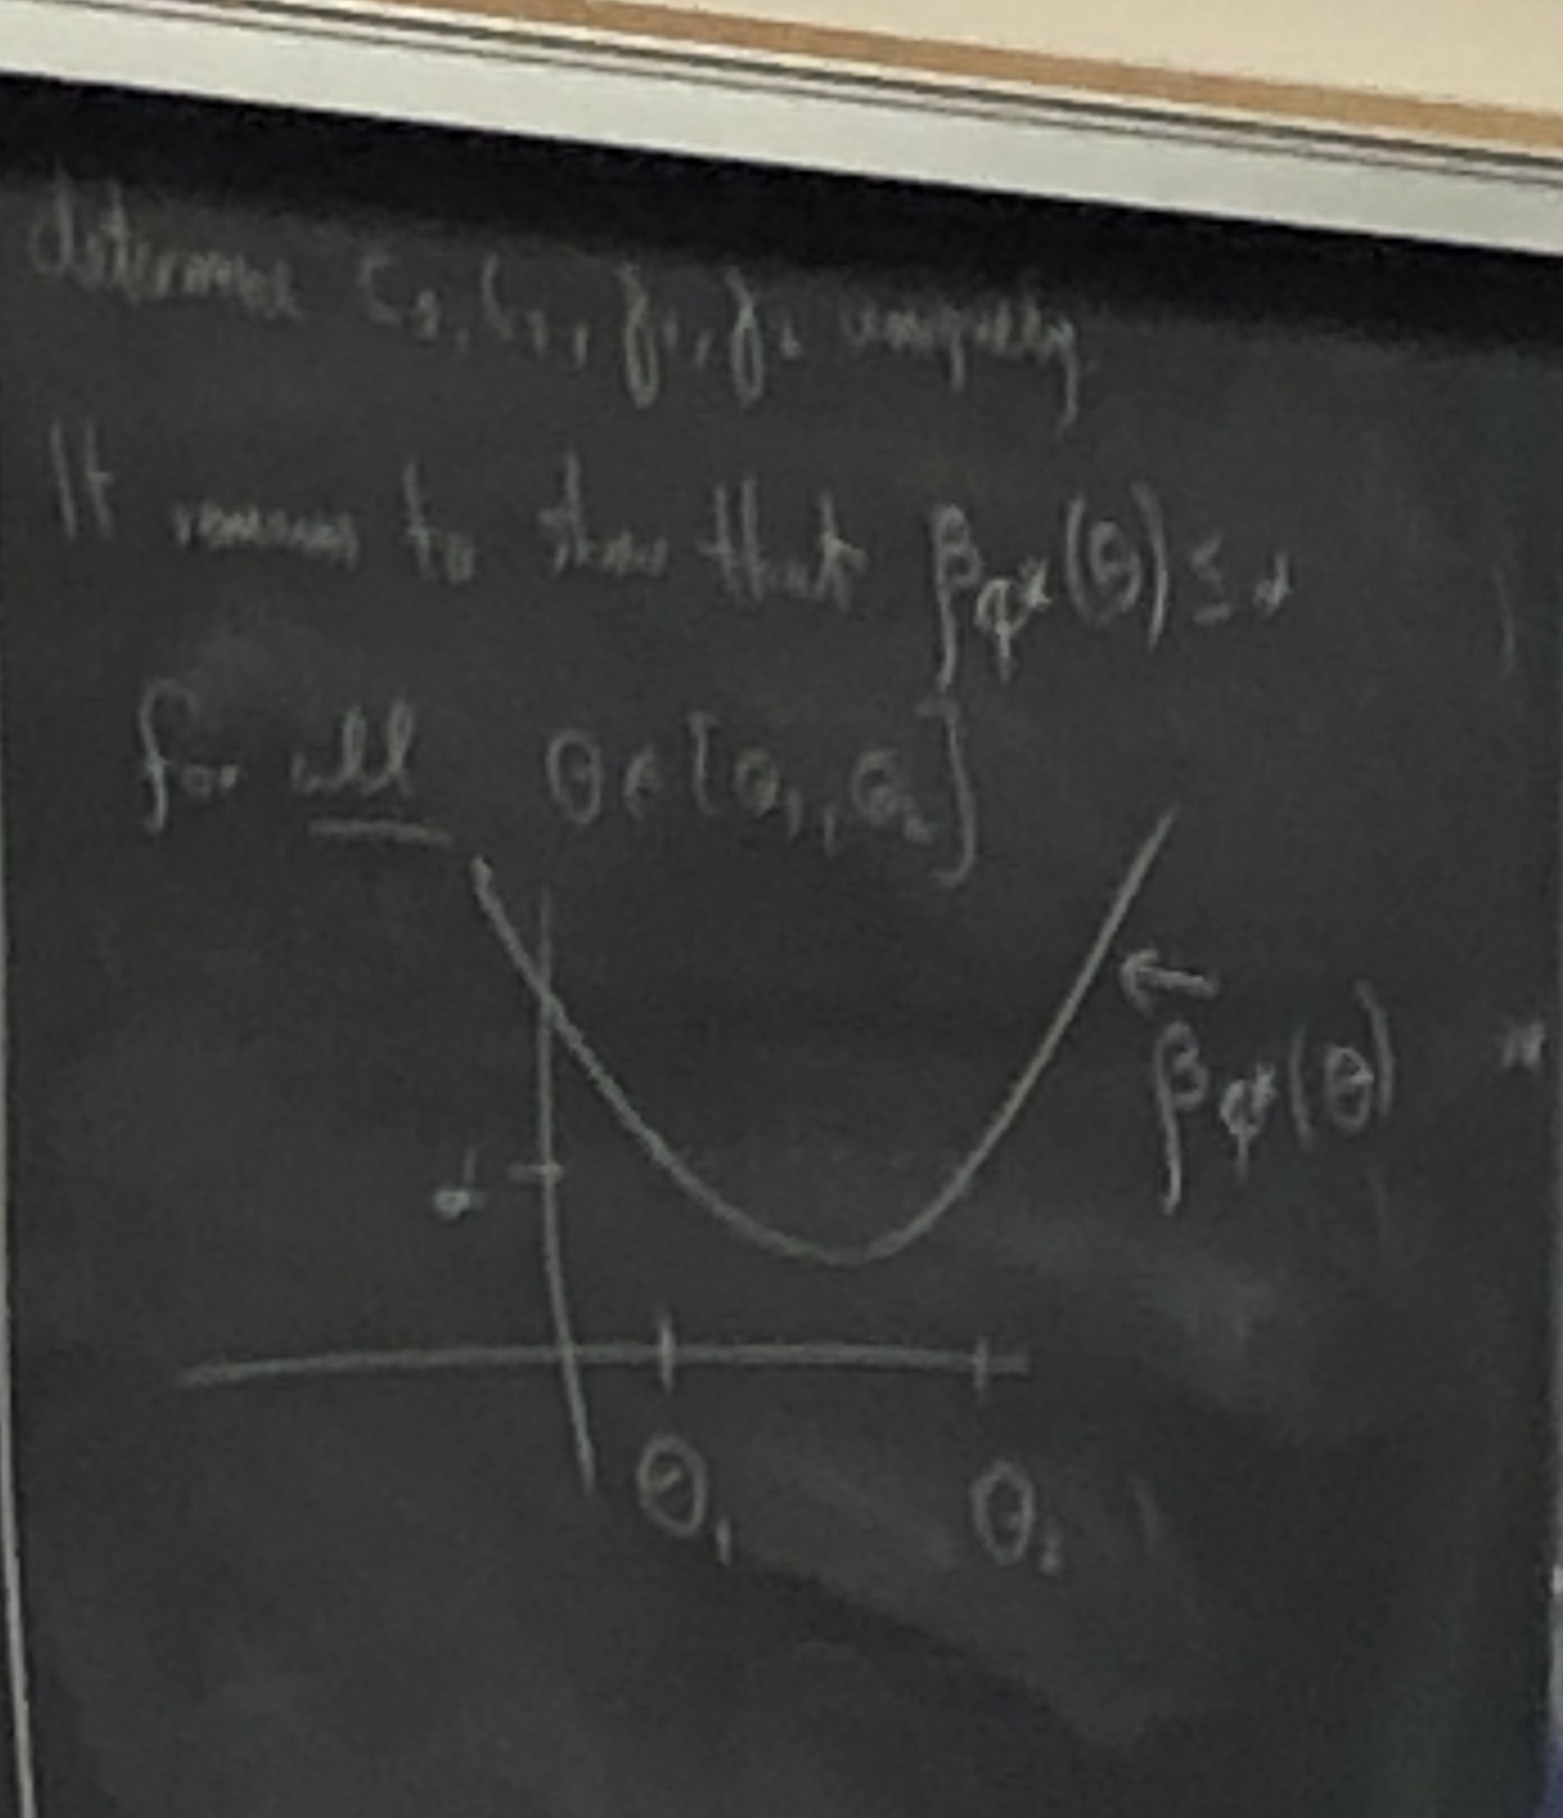 determine C₁, C₂, γ₁, γ₂ uniquely
It remains to show that β_φ*(θ) ≤ α
for all θ ∈ [θ₁, θ₂]
← β_φ*(θ)
α
θ₁ θ₂